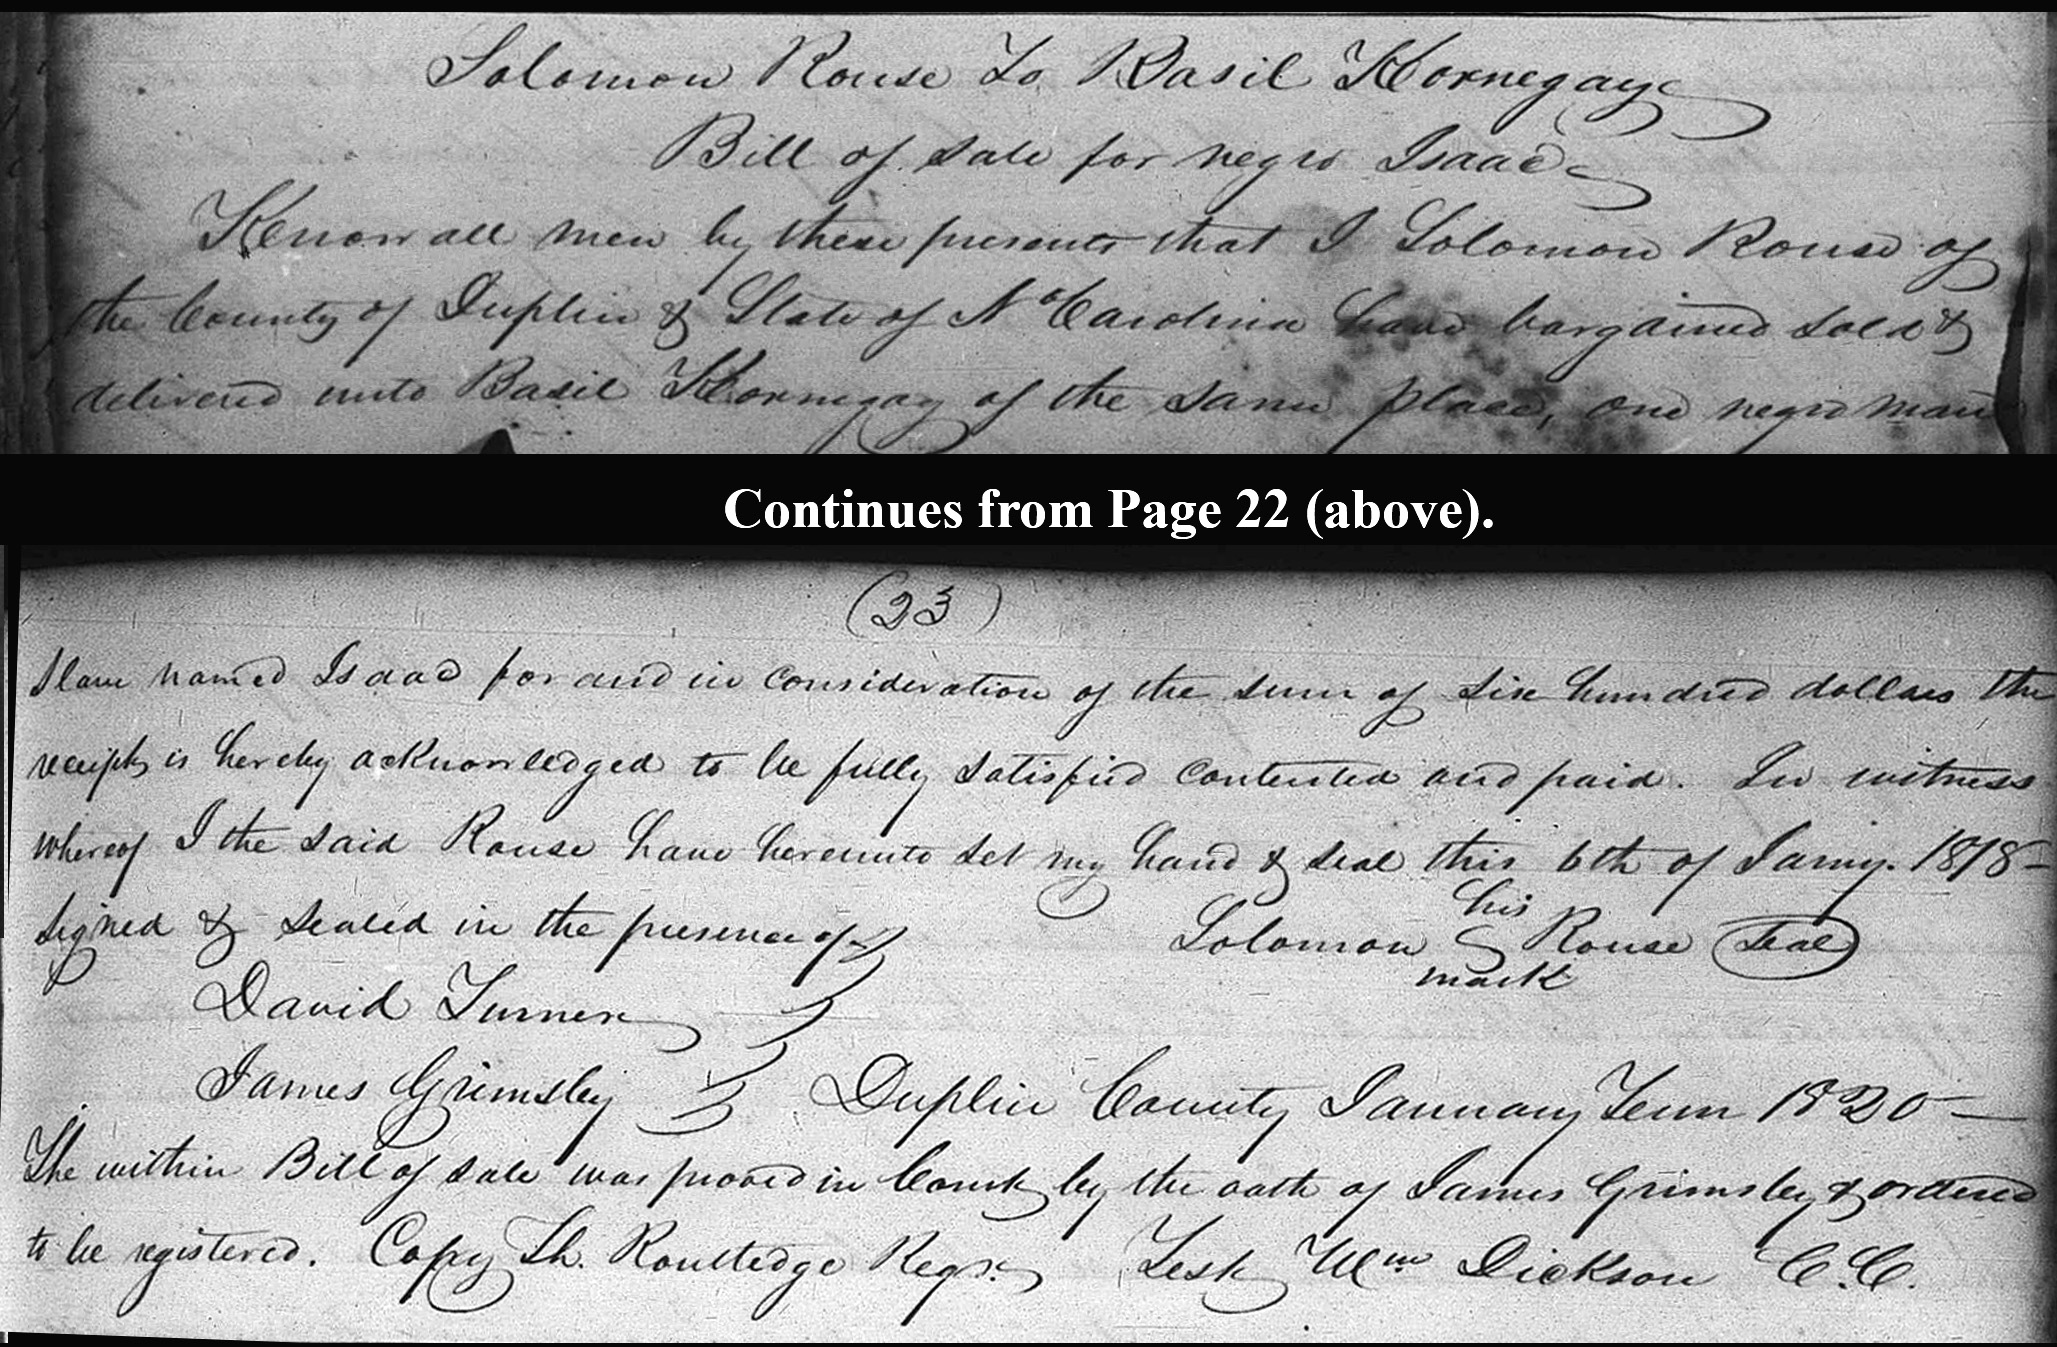 Solomon Rouse To Basil Kornegay
Bill of sale for negro Isaac
Know all men by these presents that I Solomon Rouse of
the County of Duplin & State of No Carolina have bargained sold &
delivered unto Basil Kornegay of the same place, one negro man
Continues from Page 22 (above).
(23)
slave named Isaac for and in consideration of the sum of six hundred dollars the
receipt is hereby acknowledged to be fully satisfied contented and paid. In witness
whereof I the said Rouse have hereunto set my hand & seal this 6th of Jany. 1818-
his
signed & sealed in the presence of Solomon S Rouse Seal
mark
David Turner
James Grimsley Duplin County January Term 1820 -
The within Bill of sale was proved in Court by the oath of James Grimsley & ordered
to be registered. Copy Th. Routledge Regr. Test Wm Dickson C.C.